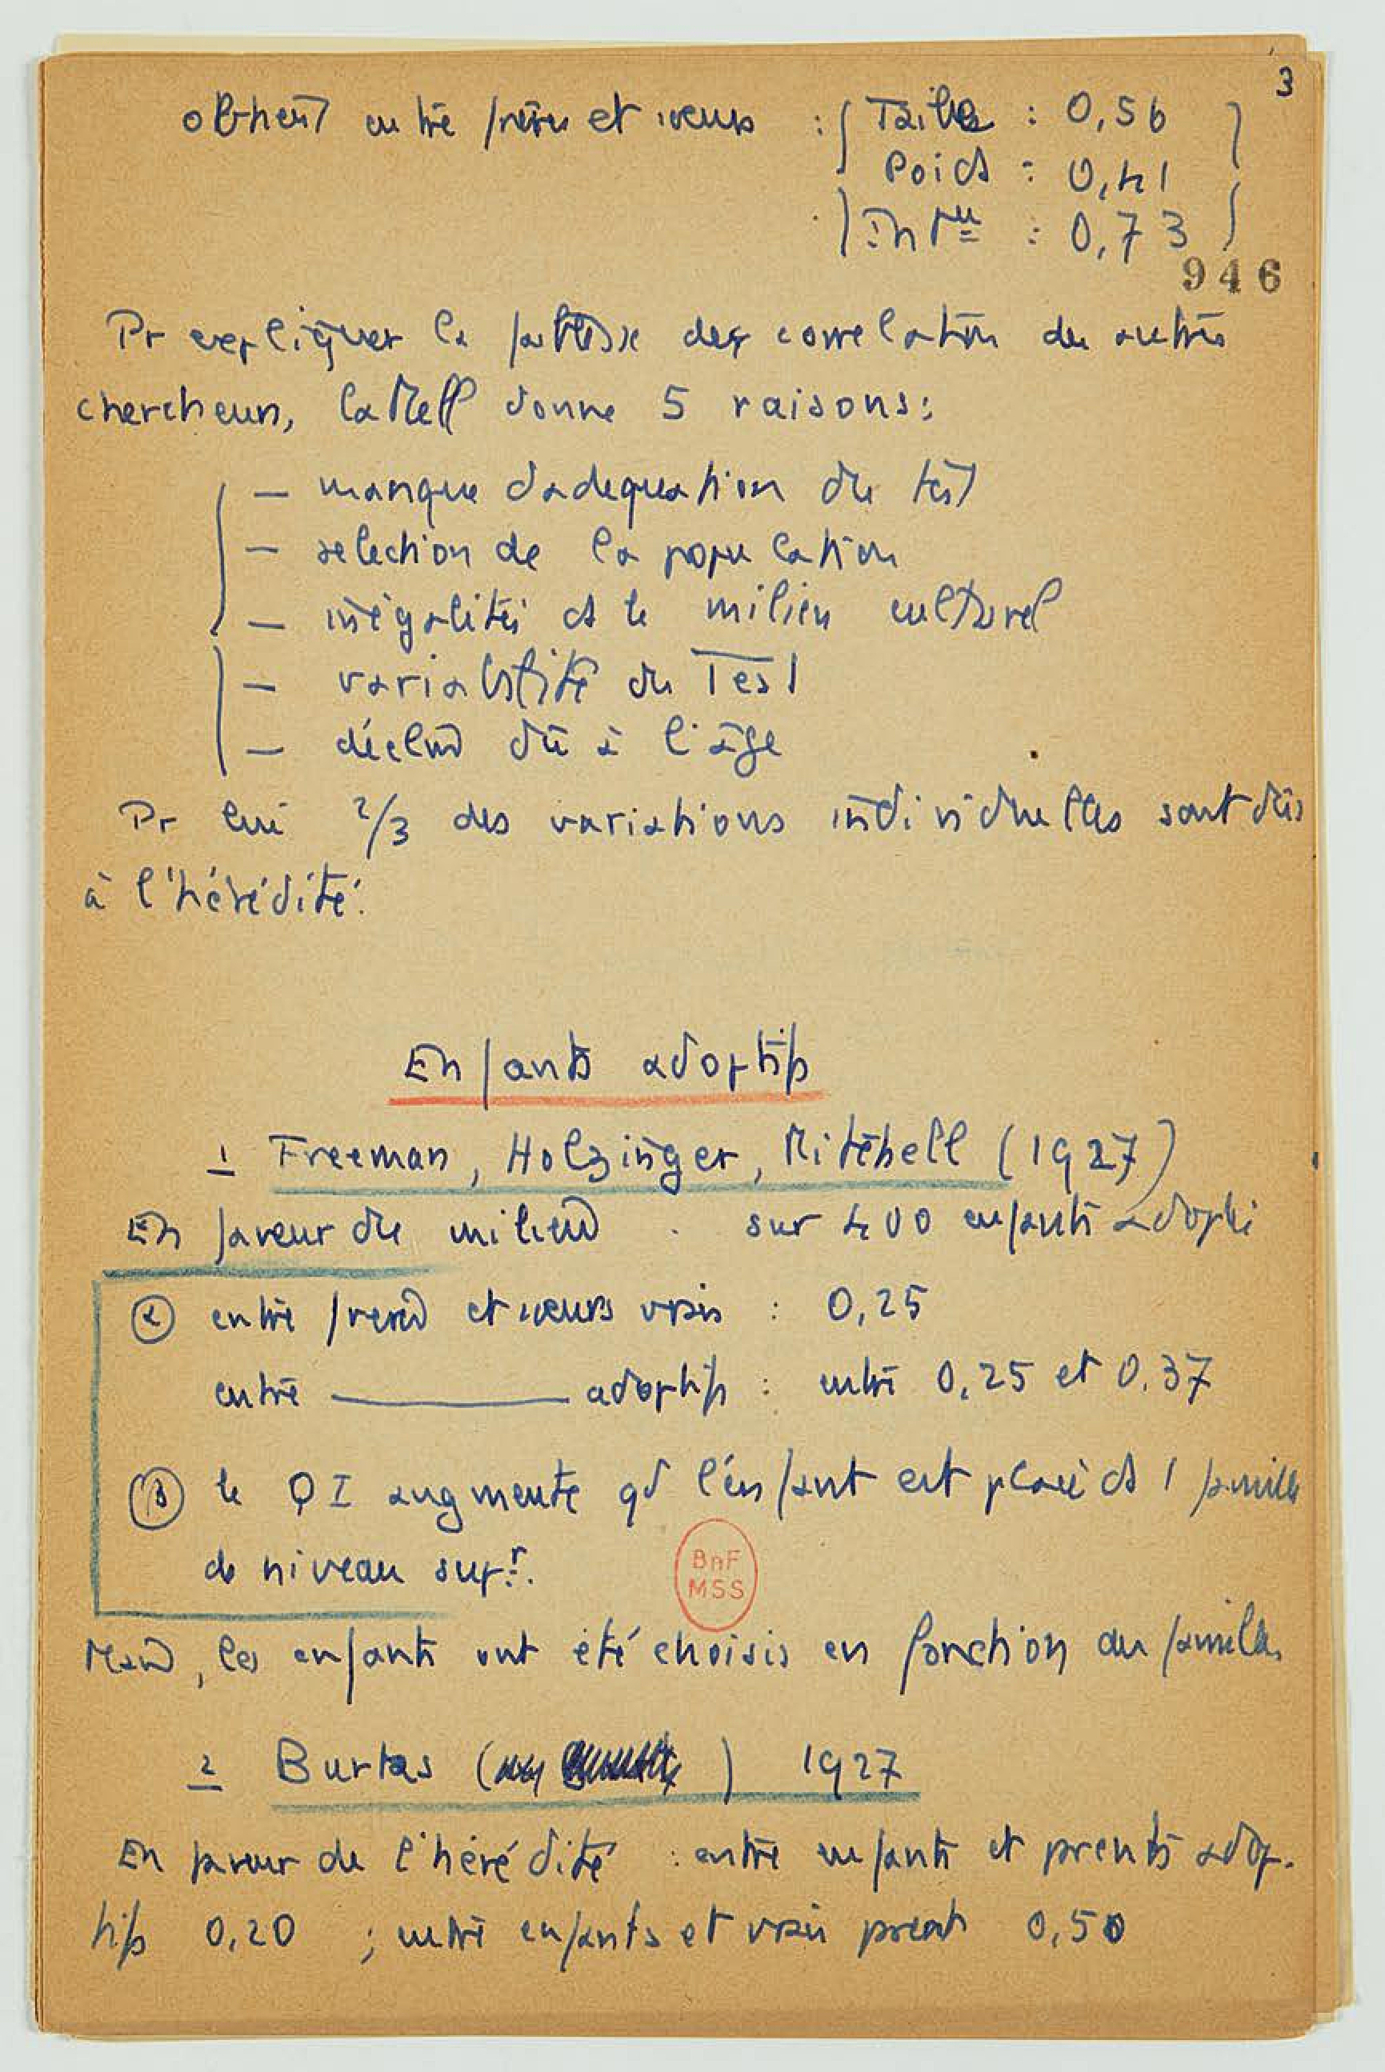 3
obtient entre frères et soeurs : Taille : 0,56
Poids : 0,41
Int^elle : 0,73
946
Pr expliquer la faiblesse des correlation des autres
chercheurs, Cattell donne 5 raisons :
— manque d'adequation du test
— selection de la population
— inégalités ds le milieu culturel
— variabilité du Test
— déclin dû à l'âge
Pr lui 2/3 des variations individuelles sont dûs
à l'hérédité.
Enfants adoptifs
1 Freeman, Holzinger, Mitchell (1927)
En faveur du milieu . sur 400 enfants adoptés
α entre frères et soeurs vrais : 0,25
entre ——— adoptifs : entre 0,25 et 0,37
β le QI augmente qd l'enfant est placé ds 1 famille
de niveau supr.
BnF
MSS
Mais, les enfants ont été choisis en fonction des familles
2 Burks ( ) 1927
En faveur de l'hérédité : entre enfants et prents adop-
tifs 0,20 ; entre enfants et vrais prents 0,50